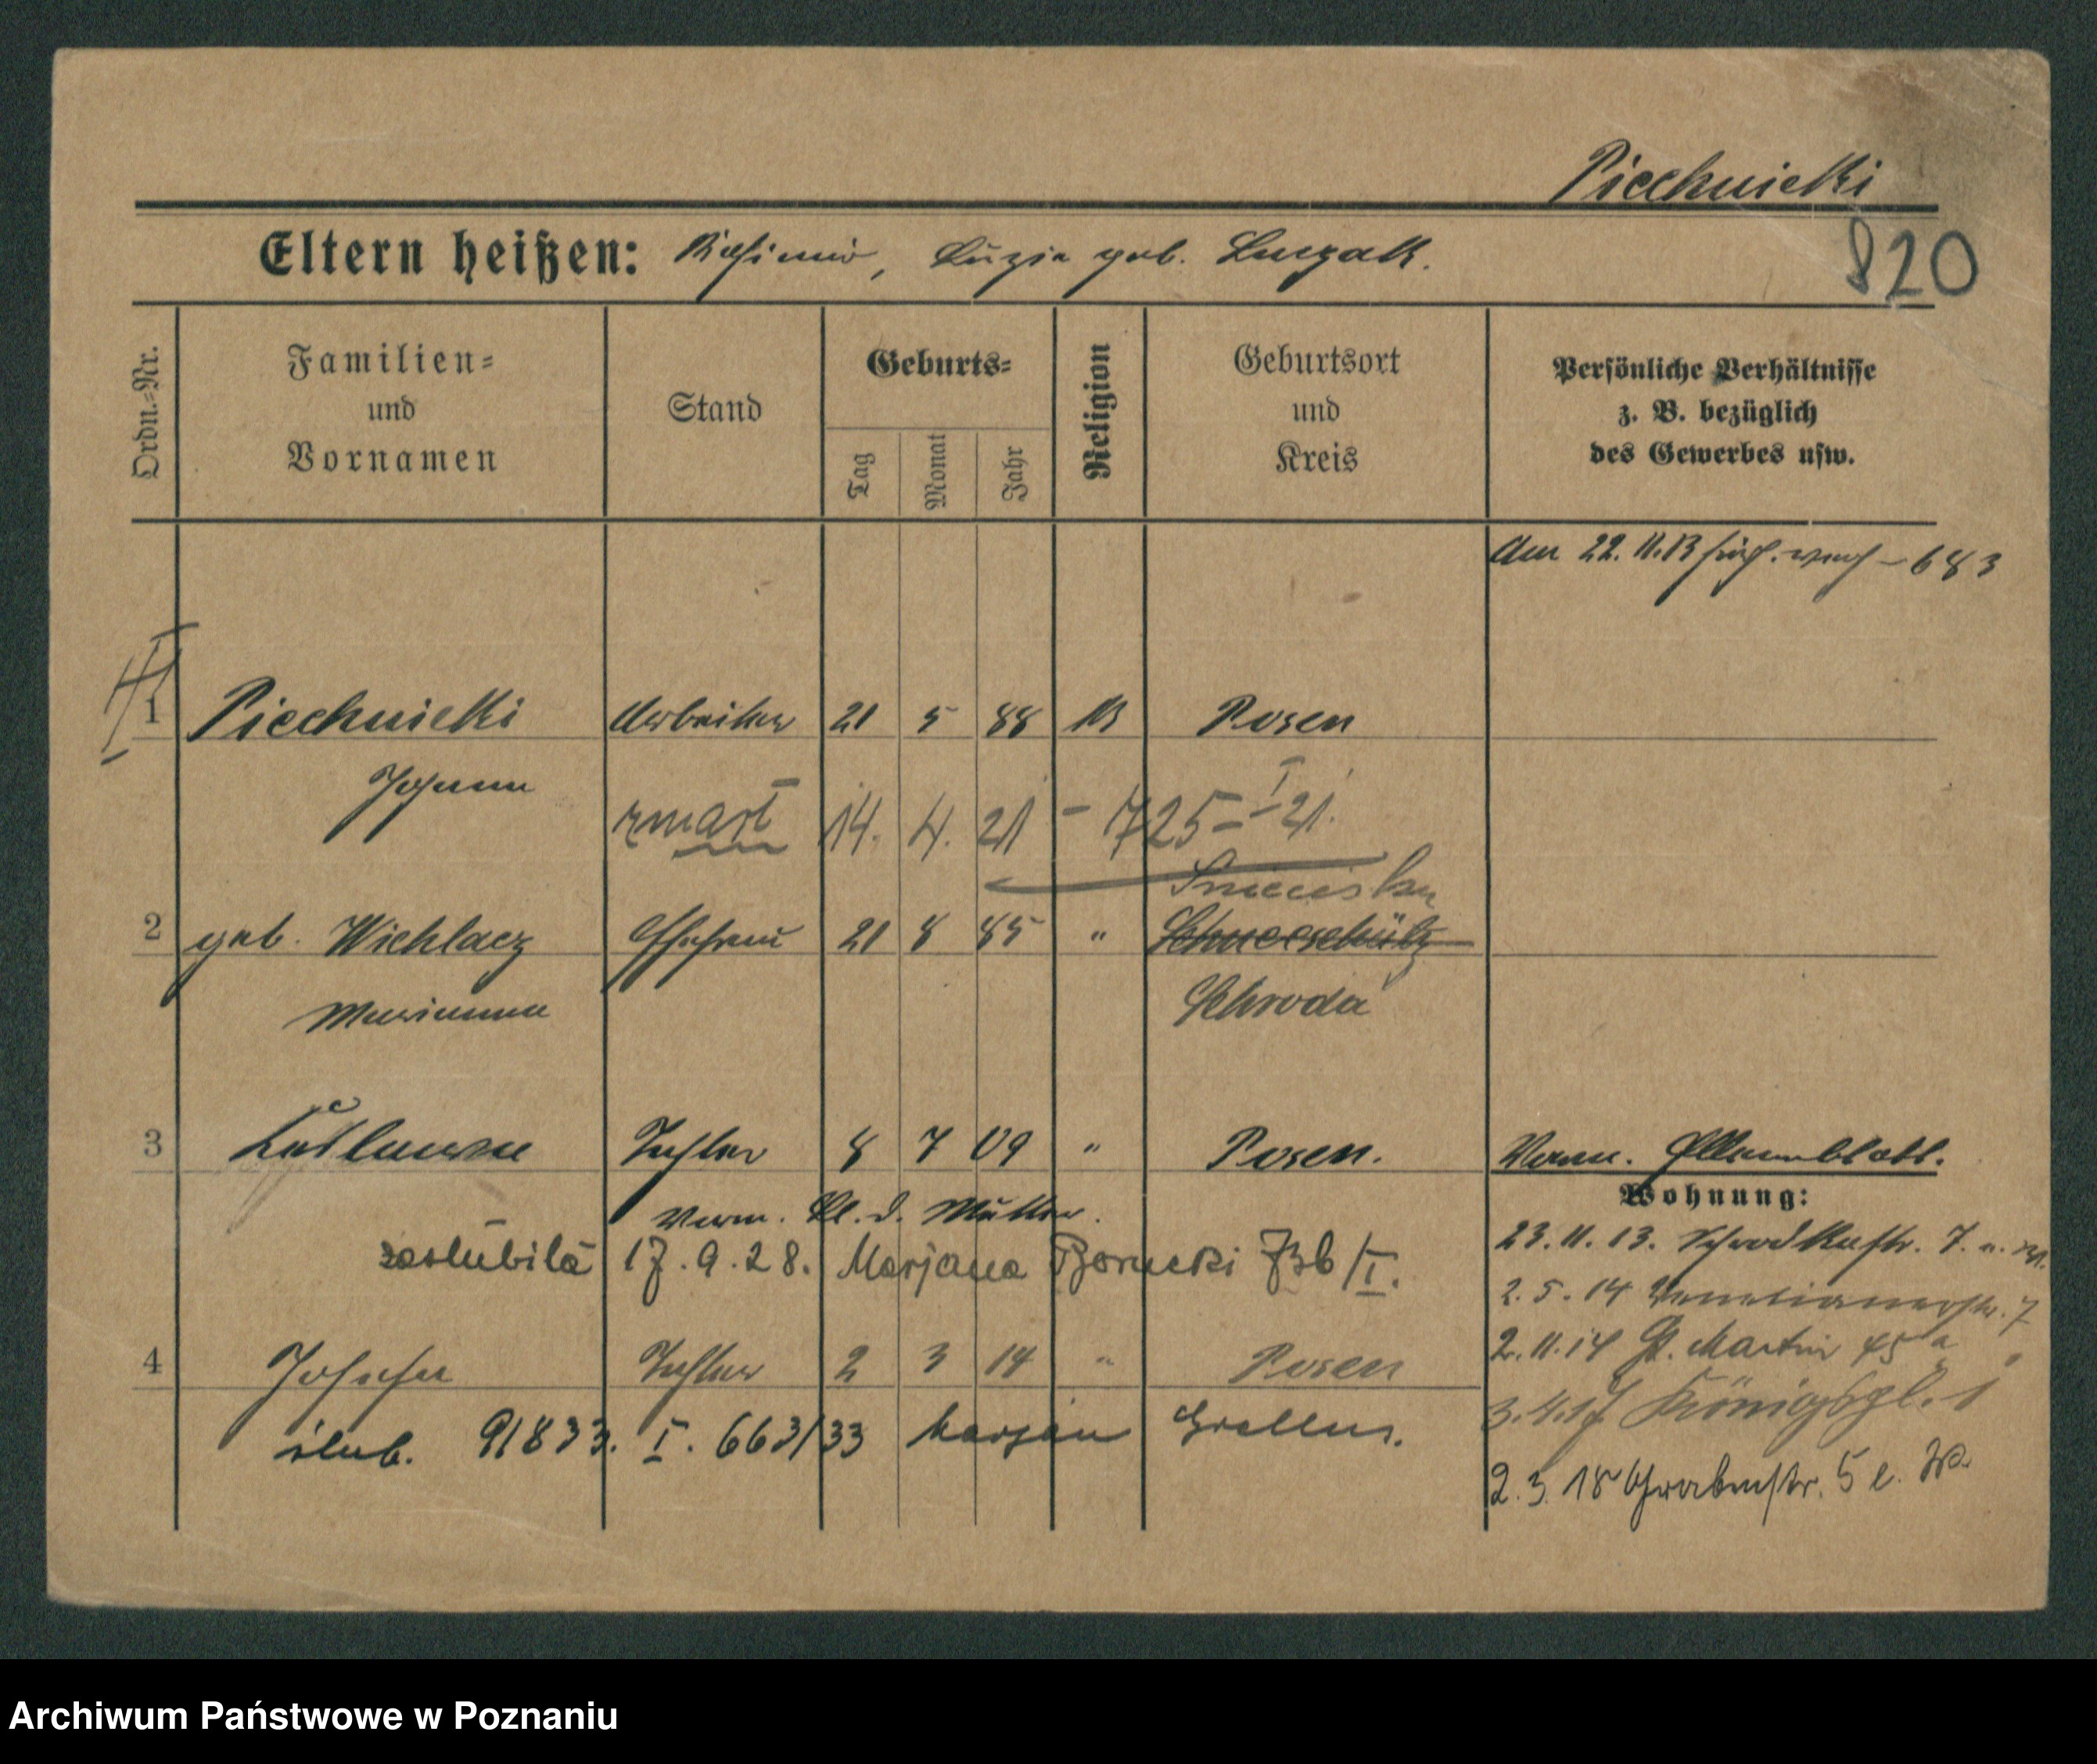 Piechnicki
820
Eltern heißen: Kasimir, Luzia geb.
Ordn.-Nr.
Familien-
und
Vornamen
Stand
Geburts-
Tag
Monat
Jahr
Religion
Geburtsort
und
Kreis
Persönliche Verhältnisse
z. B. bezüglich
des Gewerbes usw.
Am 22. 11. 13 683
1 Piechnicki Arbeiter 21 5 88 K Posen
Johann
zmarł 14. 4. 21 - 725 - I - 21.
2 geb. Wichlacz Ehefrau 21 8 85 "
Marianna
Schroda
3 Tochter 8 7 09 " Posen.
Verm. Bl. d. Mutter.
Wohnung:
zaślubiła 17. 9. 28. Marjana Borucki 736/I.
23. 11. 13. Schrodkastr. 7.
2. 5. 14 Venetianerstr. 7
2. 11. 14 St. Martin 45
4 Josefa Tochter 2 3 14 " Posen
3. 4. 17 Königspl. 1
ślub. 91833. I. 663/33 Marjan
2. 3. 18 Grabenstr. 5
Archiwum Państwowe w Poznaniu